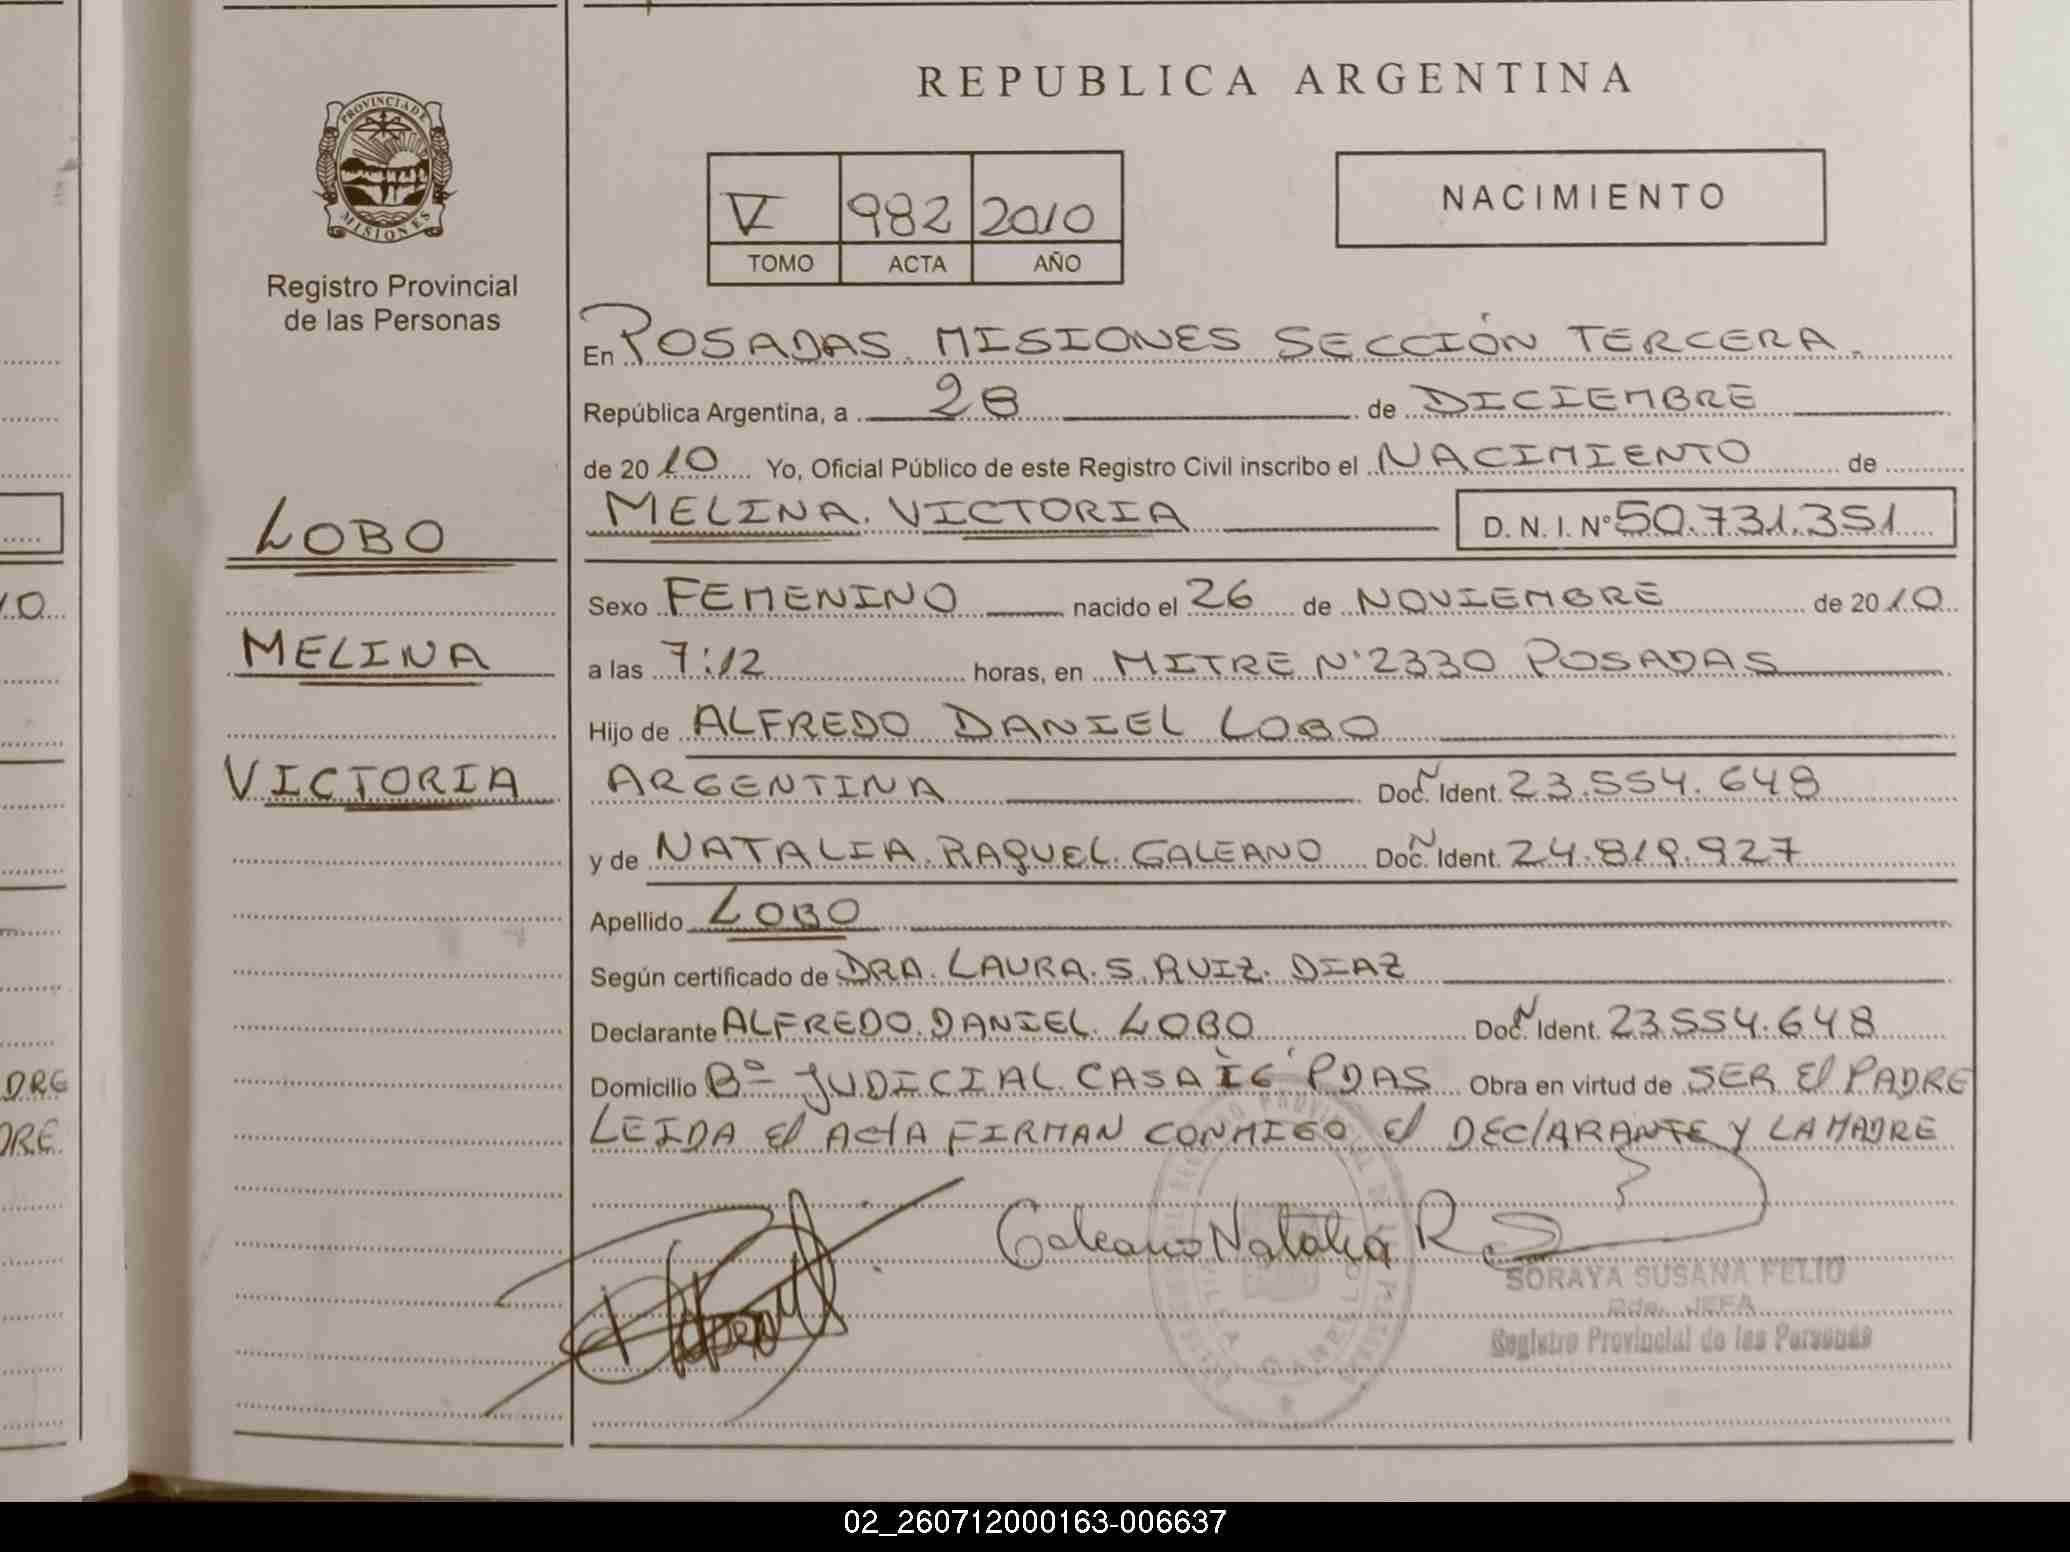 REPUBLICA ARGENTINA
PROVINCIA DE MISIONES
Registro Provincial
de las Personas
V 982 2010
TOMO ACTA AÑO
NACIMIENTO
En POSADAS. MISIONES SECCIÓN TERCERA.
República Argentina, a 28 de DICIEMBRE
de 2010 Yo, Oficial Público de este Registro Civil inscribo el NACIMIENTO de
MELINA. VICTORIA D. N. I. Nº 50.731.351
LOBO
MELINA
VICTORIA
Sexo FEMENINO nacido el 26 de NOVIEMBRE de 2010
a las 7:12 horas, en MITRE N° 2330 POSADAS
Hijo de ALFREDO DANIEL LOBO
ARGENTINA Doc. Ident. 23.554.648
y de NATALIA. RAQUEL. GALEANO Doc. Ident. 24.819.927
Apellido LOBO
Según certificado de DRA. LAURA. S. RUIZ. DIAZ
Declarante ALFREDO. DANIEL. LOBO Doc. Ident. 23.554.648
Domicilio Bº JUDICIAL. CASA PDAS Obra en virtud de SER El PADRE
LEIDA El ActA FIRMAN CONMIGO El DEClARANTE Y LA MADRE
Galeano Natalia R
SORAYA SUSANA FELIU
Pde. JEFA
Registro Provincial de las Personas
10
DRE
DRE
02_260712000163-006637